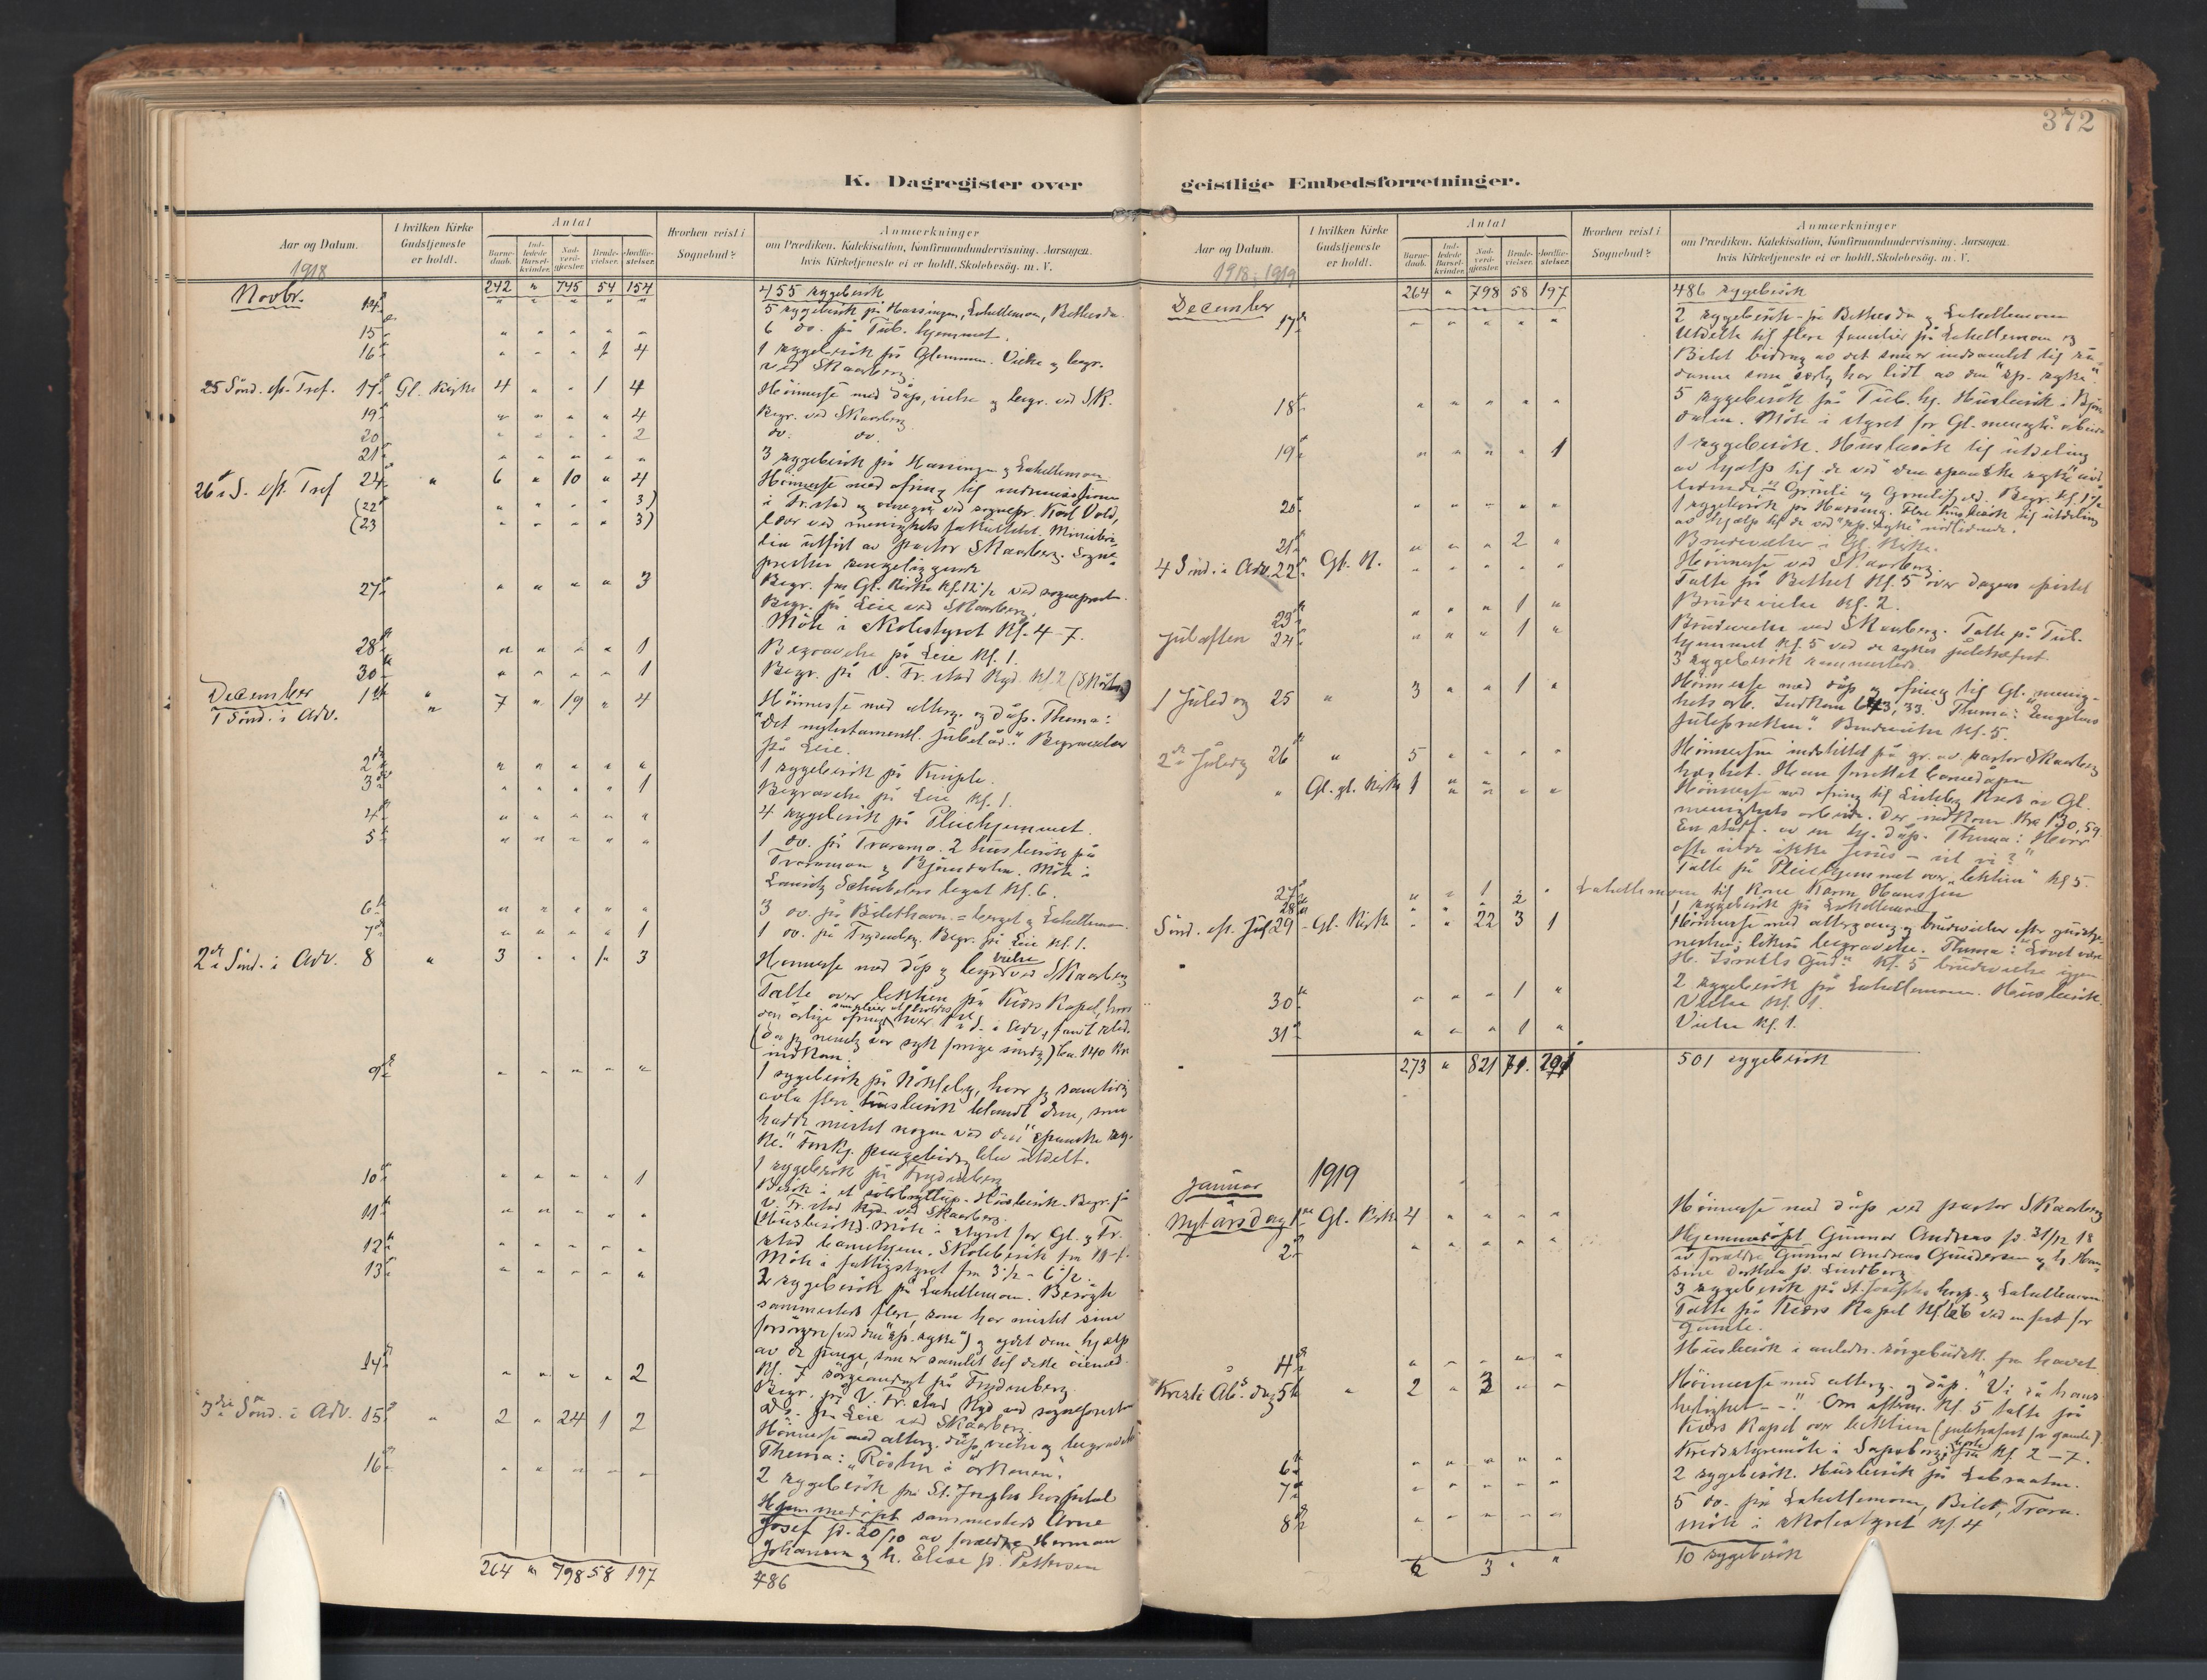 372
K. Dagregister over geistlige Embedsforretninger.
Aar og Datum.
I hvilken Kirke Gudstjeneste er holdt.
Antal
Barnedaab.
Indledede Barselkvinder.
Nadverdgjester.
Brudevielser.
Jordfæstelser.
Hvorhen reist i Sognebud?
Anmærkninger
om Prædiken. Katekisation, Konfirmandundervisning. Aarsagen
hvis Kirketjeneste ei er holdt. Skolebesøg. m. V.
1918
242 " 745 54 154 455 sygebesök
Novbr. 14de " " " " " 5 sygebesök på Hassingen, Lahellemoen, Bethesda
15 " " " " " 6 do. på Tub. hjemmet.
16 " " " 1 4 1 sygebesök på Glemmen. Vielse og begr.
ved Skaarberg
25 Sönd. eft. Tref. 17de Gl. Kirke 4 " " 1 4 Höimesse med dåp, vielse og begr. ved Sk.
19 " " " " 4 Begr. ved Skaarberg
20 " " " " 2 do. do.
21 " " " " " 3 sygebesök på Hassingen og Lahellemoen
26de S. eft. Tref 24de " 6 " 10 " 4 Höimesse med ofring til indremissionen
(22 " " " " 3) i Fr.stad og omegn ved sognepr. Karl Vold,
(23 " " " " 3) lærer ved menighets fakultetet.
len utført av pastor Skaarberg. Sogne-
presten sengeliggende
27de " " " " 3 Begr. fra Gl. Kirke kl. 12 1/2 ved sognepresten.
Begr. på Leie ved Skaarberg.
Möte i skolestyret kl. 4-7.
28de " " " " 1 Begravelse på Leie kl. 1.
30te " " " " 1 Begr. på V. Fr.stad Kgd. kl. 2
December
1 Sönd. i Adv. 1ste " 7 " 19 " 4 Höimesse med alterg. og dåp. Thema:
"Det nytestamentl. jubelår." Begravelser
på Leie.
2den " " " " " 1 sygebesök på Kniple.
3die " " " " 1 Begravelse på Leie kl. 1.
4de " " " " " 4 sygebesök på Pleiehjemmet.
5te " " " " " 1 do. på Traramo. 2 husbesök på
Traramoen og Björndalen. Möte i
legat kl. 6.
6te " " " " " 3 do. på og Lahellemoen.
7de " " " " 1 1 do. på Frydenberg. Begr. på Leie kl. 1.
2den Sönd. i Adv. 8 " 3 " " 1 3 Höimesse med dåp vielse og begr. ved Skaarberg
Talte over lektien på Kiærs Kapel, hvor
den årlige ofring
(da jeg nemlig var syk forrige söndag) ca. 140 kr
indkom.
9de " " " " " 1 sygebesök på Nökleby, hvor jeg samtidig
avla flere husbesök blandt dem, som
hadde mistet nogen ved den "spanske sy-
ke." Forskj. pengebidrag blev utdelt.
10de " " " " 1 1 sygebesök på Frydenberg
Besök i et sölvbryllup. Husbesök. Begr. på
V. Fr.stad Kgd. ved Skaarberg.
11te " " " " " (Husbesök). Möte i styret for Gl. og Fr.
stad barnehjem. Skolebesök fra 11-1.
12te " " " " " Möte i fattigstyret fra 3 1/2 - 6 1/2.
13de " " " " " 2 sygebesök på Lahellemoen. Besögte
sammesteds flere, som har mistet sine
forsörgere (ved den "sp. syke") og ydet dem hjælp
av de penge, som er samlet til dette öiemed.
Kl. 7 sörgeandagt på Frydenberg.
14de " " " " 2 Begr. på V. Fr.stad Kgd ved sognepresten
Do. på Leie ved Skaarberg.
3die Sönd. i Adv. 15de " 2 " 24 1 2 Höimesse med alterg. dåp, vielse og begravelse
Thema: "Rösten i örkenen."
16de " " " " " 2 sygebesök på St. Josephs hospital
Hjemmedöpt sammesteds Arne
Josef f. 20/10 av forældre Herman
Johansen og h. Elise f. Pettersen
264 " 798 58 197 486
Aar og Datum.
I hvilken Kirke Gudstjeneste er holdt.
Antal
Barnedaab.
Indledede Barselkvinder.
Nadverdgjester.
Brudevielser.
Jordfæstelser.
Hvorhen reist i Sognebud?
Anmærkninger
om Prædiken. Katekisation, Konfirmandundervisning. Aarsagen
hvis Kirketjeneste ei er holdt. Skolebesøg. m. V.
1918-1919
264 " 798 58 197 486 sygebesök
December 17de " " " " " 2 sygebesök på Bethesda og Lahellemoen
Utdelte til flere familier på Lahellemoen og
Bilet bidrag av det som er indsamlet til så-
danne som særlig har lidt av den "sp. syke".
18de " " " " " 5 sygebesök på Tub. hj. Husbesök i Björn-
dalen. Möte i styret for Gl. menigh. arbeide
19de " " " " 1 1 sygebesök. Husbesök til utdeling
av hjælp til de ved "den spanske syke" nöd-
lidende, Grönli og Begr. kl. 1 1/2
20de " " " " " 1 sygebesök på Hassing. Flere husbesök til utdeling
av hjælp til de ved "sp. syke" nödlidende.
21de " " " 2 " Brudevielser i Gl. Kirke.
4 Sönd. i Adv. 22de Gl. K. " " " " " Höimesse ved Skaarberg.
Talte på Bethel kl. 5 over dagens epistel
23de " " " 1 " Brudevielse kl. 2.
Juleaften 24de " " " 1 " Brudevielse ved Skaarberg. Talte på Tub.
hjemmet kl. 5 ved de sykes juletræfest.
3 sygebesök sammesteds.
1 Juledag 25 " 3 " " 1 " Höimesse med dåp og ofring til Gl. menig-
hets arb. Indkom 643,33. Thema: "Englenes
julepræken." Brudevielse kl. 5.
2den Juledag 26de " 5 " " " " Höimessen indstillet på gr. av pastor Skaarberg
heshet. Han forrettet barnedåpen
" Gl. gl. Kirke 1 " " " " Höimesse med ofring til Gl.
menighets arbeide. Der indkom kr. 130,59
En stödf. av en hj. dåp. Thema: "Herr
ofte vilde ikke Jesus - vil vi?"
Talte på Pleiehjemmet over "lektien" kl 5.
27de " " 1 2 " Lahellemoen til Karen Hanssen
28de " " " " " 1 sygebesök på Lahellemoen
Sönd. eft. Jul 29 Gl. Kirke " " 22 3 1 Höimesse med altergang og brudevielser efter gudstje-
nesten; likesaa begravelse. Thema: "Lovet være
H. Israels Gud." Kl. 5 brudevielse igjen
30te " " " 1 " 2 sygebesök på Lahellemoen. Husbesök.
Vielse kl. 1.
31te " " " 1 " Vielse kl. 1.
273 " 821 71. 201 501 sygebesök
1919
Januar
Nytårsdag 1ste Gl. Kirke 4 " " " " Höimesse med dåp ved pastor Skaarberg
2den " " " " " Hjemmedöpt Gunnar Andreas f. 31/12 18
av forældre Gunnar Andreas Gundersen og h. Han-
sine Dorthea f. Lindberg
3 sygebesök på St. Josephs hosp. og Lahellemoen
Talte på Kiærs Kapel kl. 6 ved en fest for
gamle.
4de " " " " " Husbesök i anledn. sörgebudsk. fra havet
Kristi Åb. dag 5te " 2 " 3 " " Höimesse med alterg. og dåp. "Vi så hans
herlighet - -" Om efterm. kl. 5 talte på
Kiærs Kapel over lektien (juletræfest for gamle).
6te " " " " " Kredsstyremöte i Sarpsborg fra kl. 2 - 7.
7de " " " " " 2 sygebesök. Husbesök på Labraaten.
8de " " " " " 5 do. på Lahellemoen, Bilet, Trara.
Möte i skolestyret kl. 4
6 3 " " 10 sygebesök